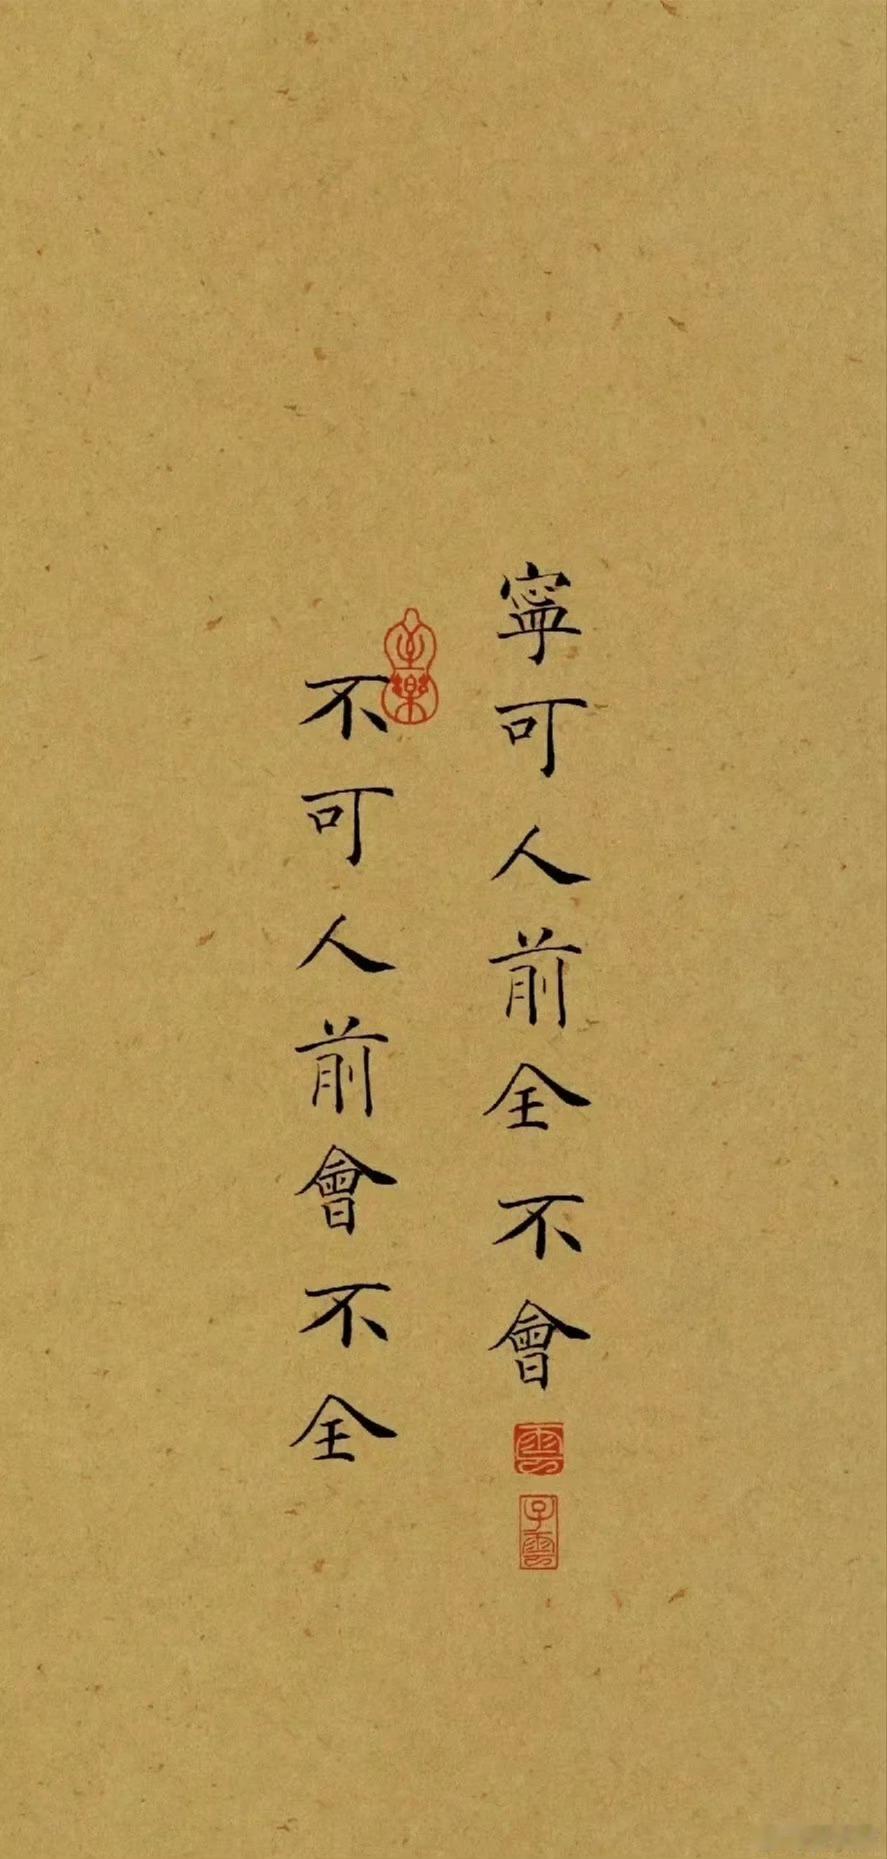 寧可人前全不會
不可人前會不全
子雲